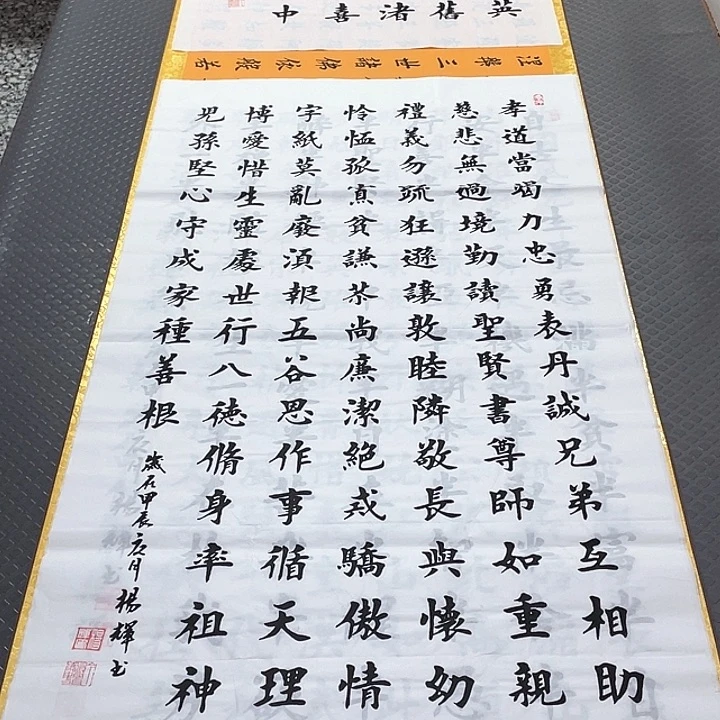 英舊渚喜中
涅槃三世諸佛依般若
孝道當竭力忠勇表丹誠兄弟互相助
慈悲無過境勤讀聖賢書尊師如重親
禮義勿疏狂遜讓敦睦隣敬長與懷幼
怜恤孤寡貧謙恭尚廉潔絕戒驕傲情
字紙莫亂廢須報五谷恩作事循天理
博愛惜生靈處世行八德脩身率祖神
児孫堅心守成家種善根
歲在甲辰月楊輝书